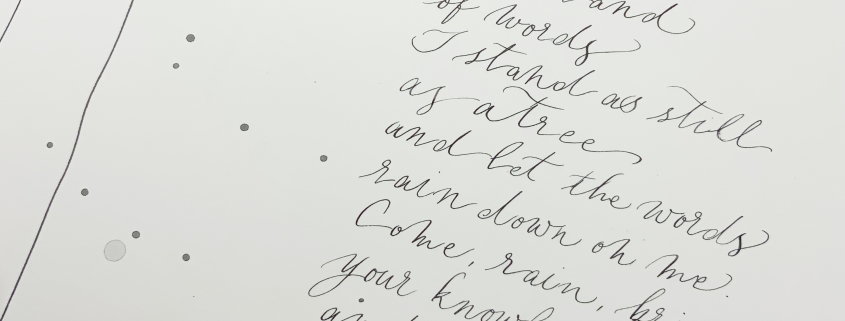 and
of words
I stand as still
as a tree
and let the words
rain down on me.
Come, rain,
your